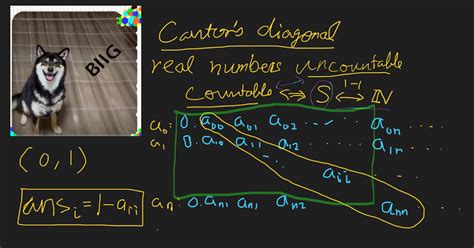 Cantor's diagonal
BIIG
real numbers uncountable
Countable ⟺ S ⟷ 1-1 ℕ
a₀: 0.a₀₀ a₀₁ a₀₂ ...... a₀ₙ ....
a₁ 0.a₁₀ a₁₁ a₁₂ ...... a₁ₙ ....
(0,1)
aᵢᵢ
ansᵢ=1-aᵢᵢ
aₙ: 0.aₙ₁ aₙ₁ aₙ₂ aₙₙ ....